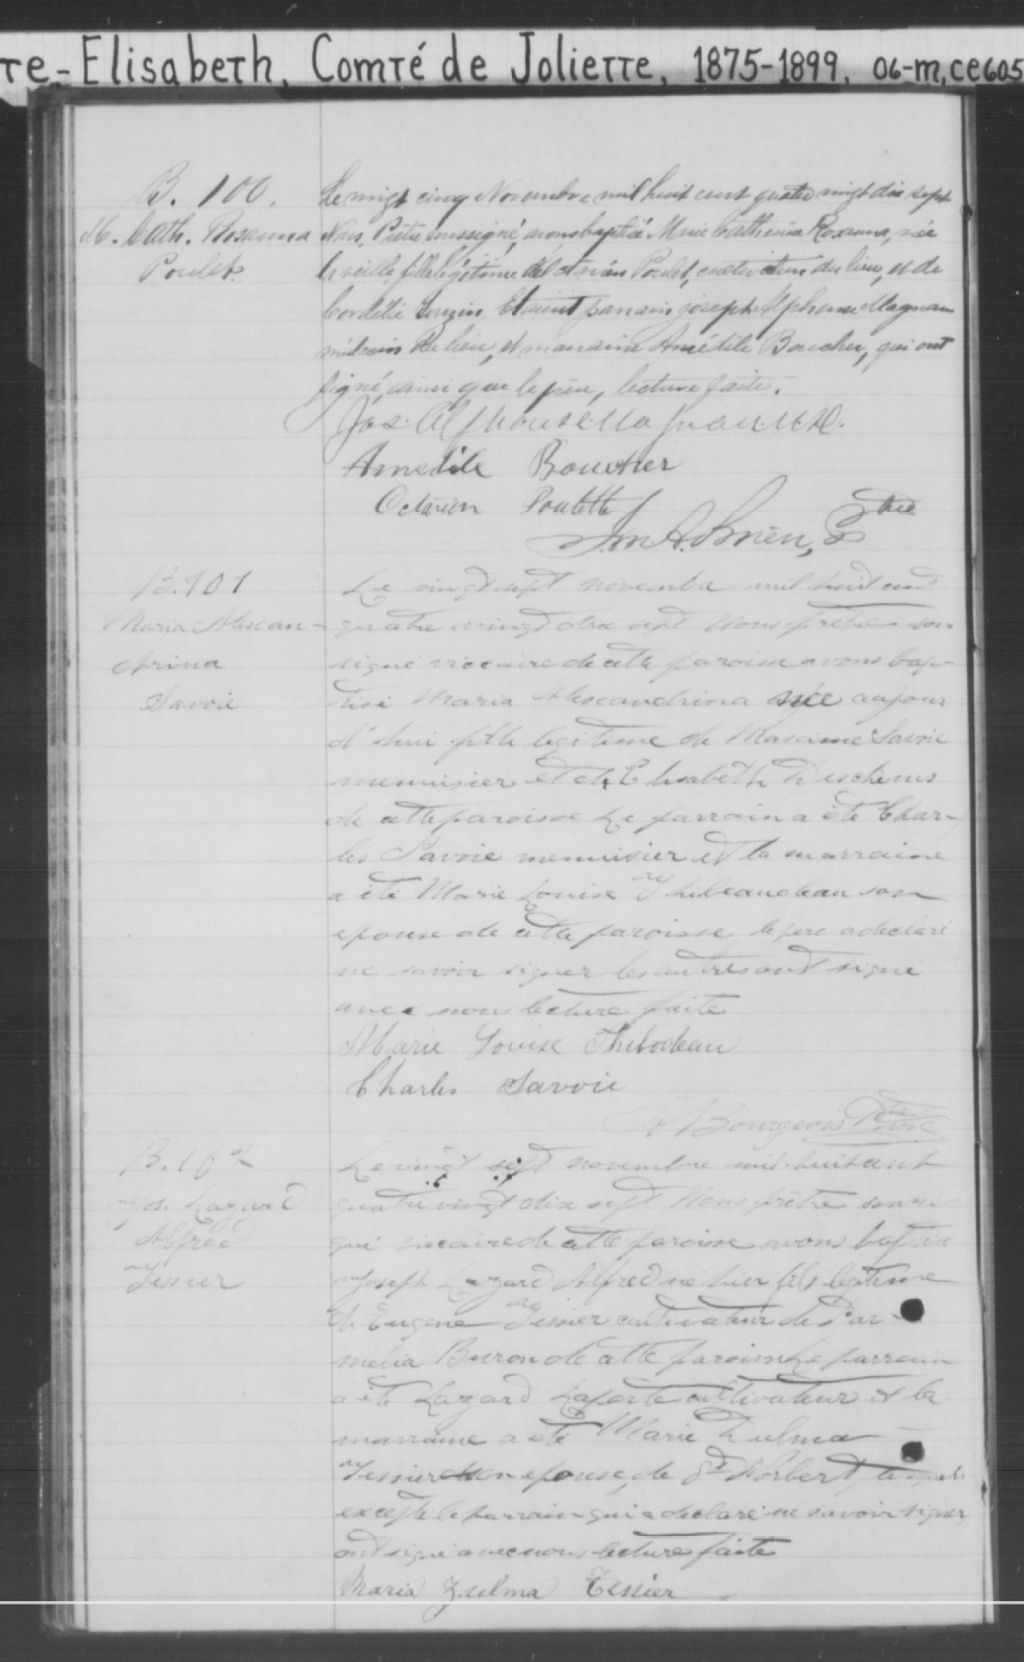 te-Elisabeth, Comté de Joliette, 1875-1899, 06-m,ce605
B. 100.
M. Cath. Rosanna
Poulet
Le vingt cinq Novembre mil huit cent quatre vingt dix sept
Nous, Prêtre soussigné, avons baptisé Marie Catherine Roxanna, née
la veille, fille légitime d'Octavien Poulet, cultivateur du lieu, et de
Cordélie . Etaient parrain joseph Alphonse Magnan
médecin du lieu, et marraine Amétile Boucher, qui ont
signé, ainsi que le père, lecture faite.
Jos. Alphonse Magnan M.D.
Amétile Boucher
Octavien Poulette
Ptre
B. 101
Maria Alexan-
drina
Savoie
Le vingt sept novembre mil huit cent
quatre vingt dix sept Nous prêtre sous-
signé viccaire de cette paroisse avons bap-
tisé Maria Alexandrina née aujour
d'hui fille legitime de Maxime Savoie
menuisier et de Elisabeth Deschenes
de cette paroisse Le parrain a été Char-
les Savoie menuisier et la marraine
a été Marie Louise Thibeaudeau son
epouse de cette paroisse le père a declaré
ne savoir signer les autres ont signé
avec nous lecture faite
Marie Louise Thibodeau
Charles Savoie
A Bourgeois Ptre Vic
B. 102
Jos. Lazard
Alfred
Tessier
Le vingt sept novembre mil huit cent
quatre vingt dix sept Nous prêtre soussi
gné viccaire de cette paroisse avons baptisé
Joseph Lazard Alfred né hier fils legitime
de Eugene Tessier cultivateur de Par-
melia Buron de cette paroisse Le parrain
a été Lazard Laporte cultivateur et la
marraine a été Marie Zulma
Tessier son epouse, de St Norbert, lesquels
excepté le parrain qui a declaré ne savoir signer,
ont signé avec nous lecture faite
Maria Zulma Tessier